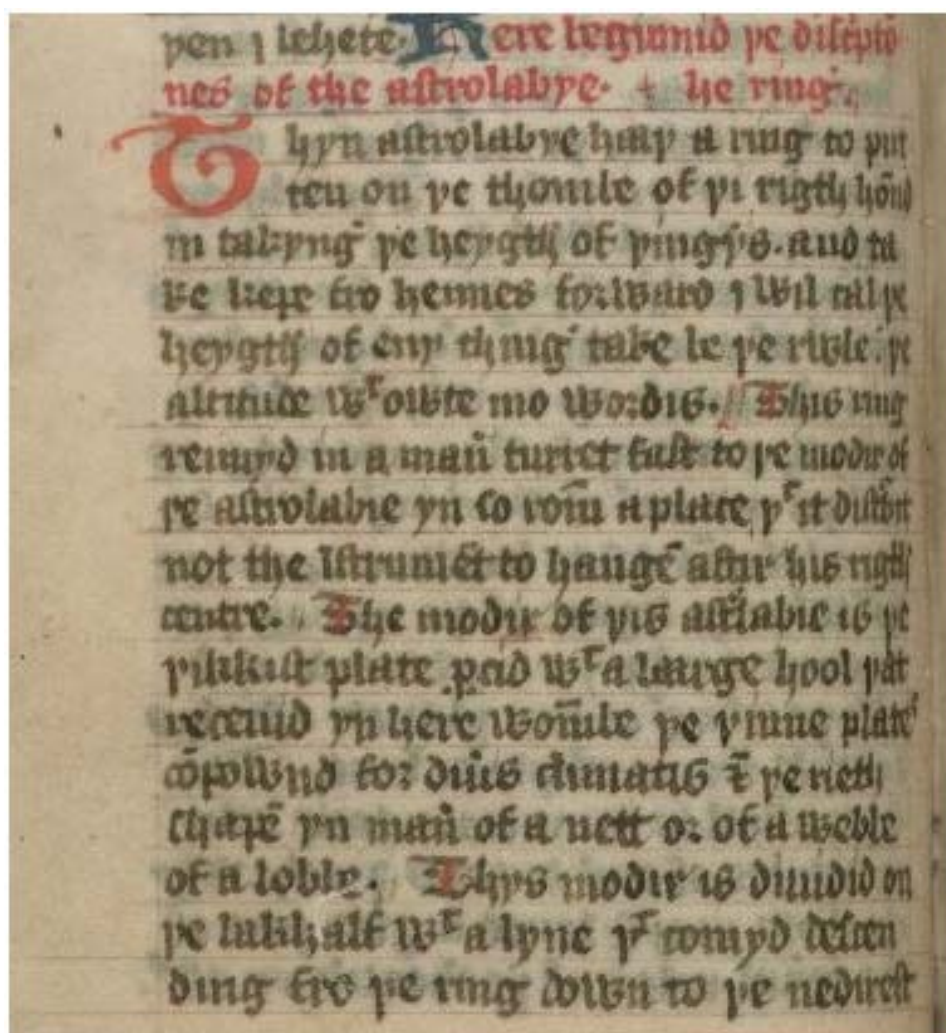 þen i lehete. Here begiunid þe discripcio
nes of the astrolabye. the ring.
Thyn astrolabye haþ a ring to put
ten on þe thombe of þi rigth hond
in takyng þe heygth of þingys. and ta
ke kepe fro hennes forward i wil cal þe
heygth of eny thing take be þe rwle. þe
altitude wt owte mo wordis. This ring
rennyd in a man turret fast to þe modir of
þe astrolabie yn so rom a place þt it disto
not the Istrumet to hange aftir his rigth
centre. The modir of þis astlabie is þe
þikkist plate pcid wt a large hool þat
receuid yn here wombe þe þinne plate
copownd for diuis climatis & þe reth
Chape yn man of a nett or of a webbe
of a lobbe. Thys modir is diuidid on
þe bakhalf wt a lyne þt comyd descen
ding fro þe ring down to þe nedirest